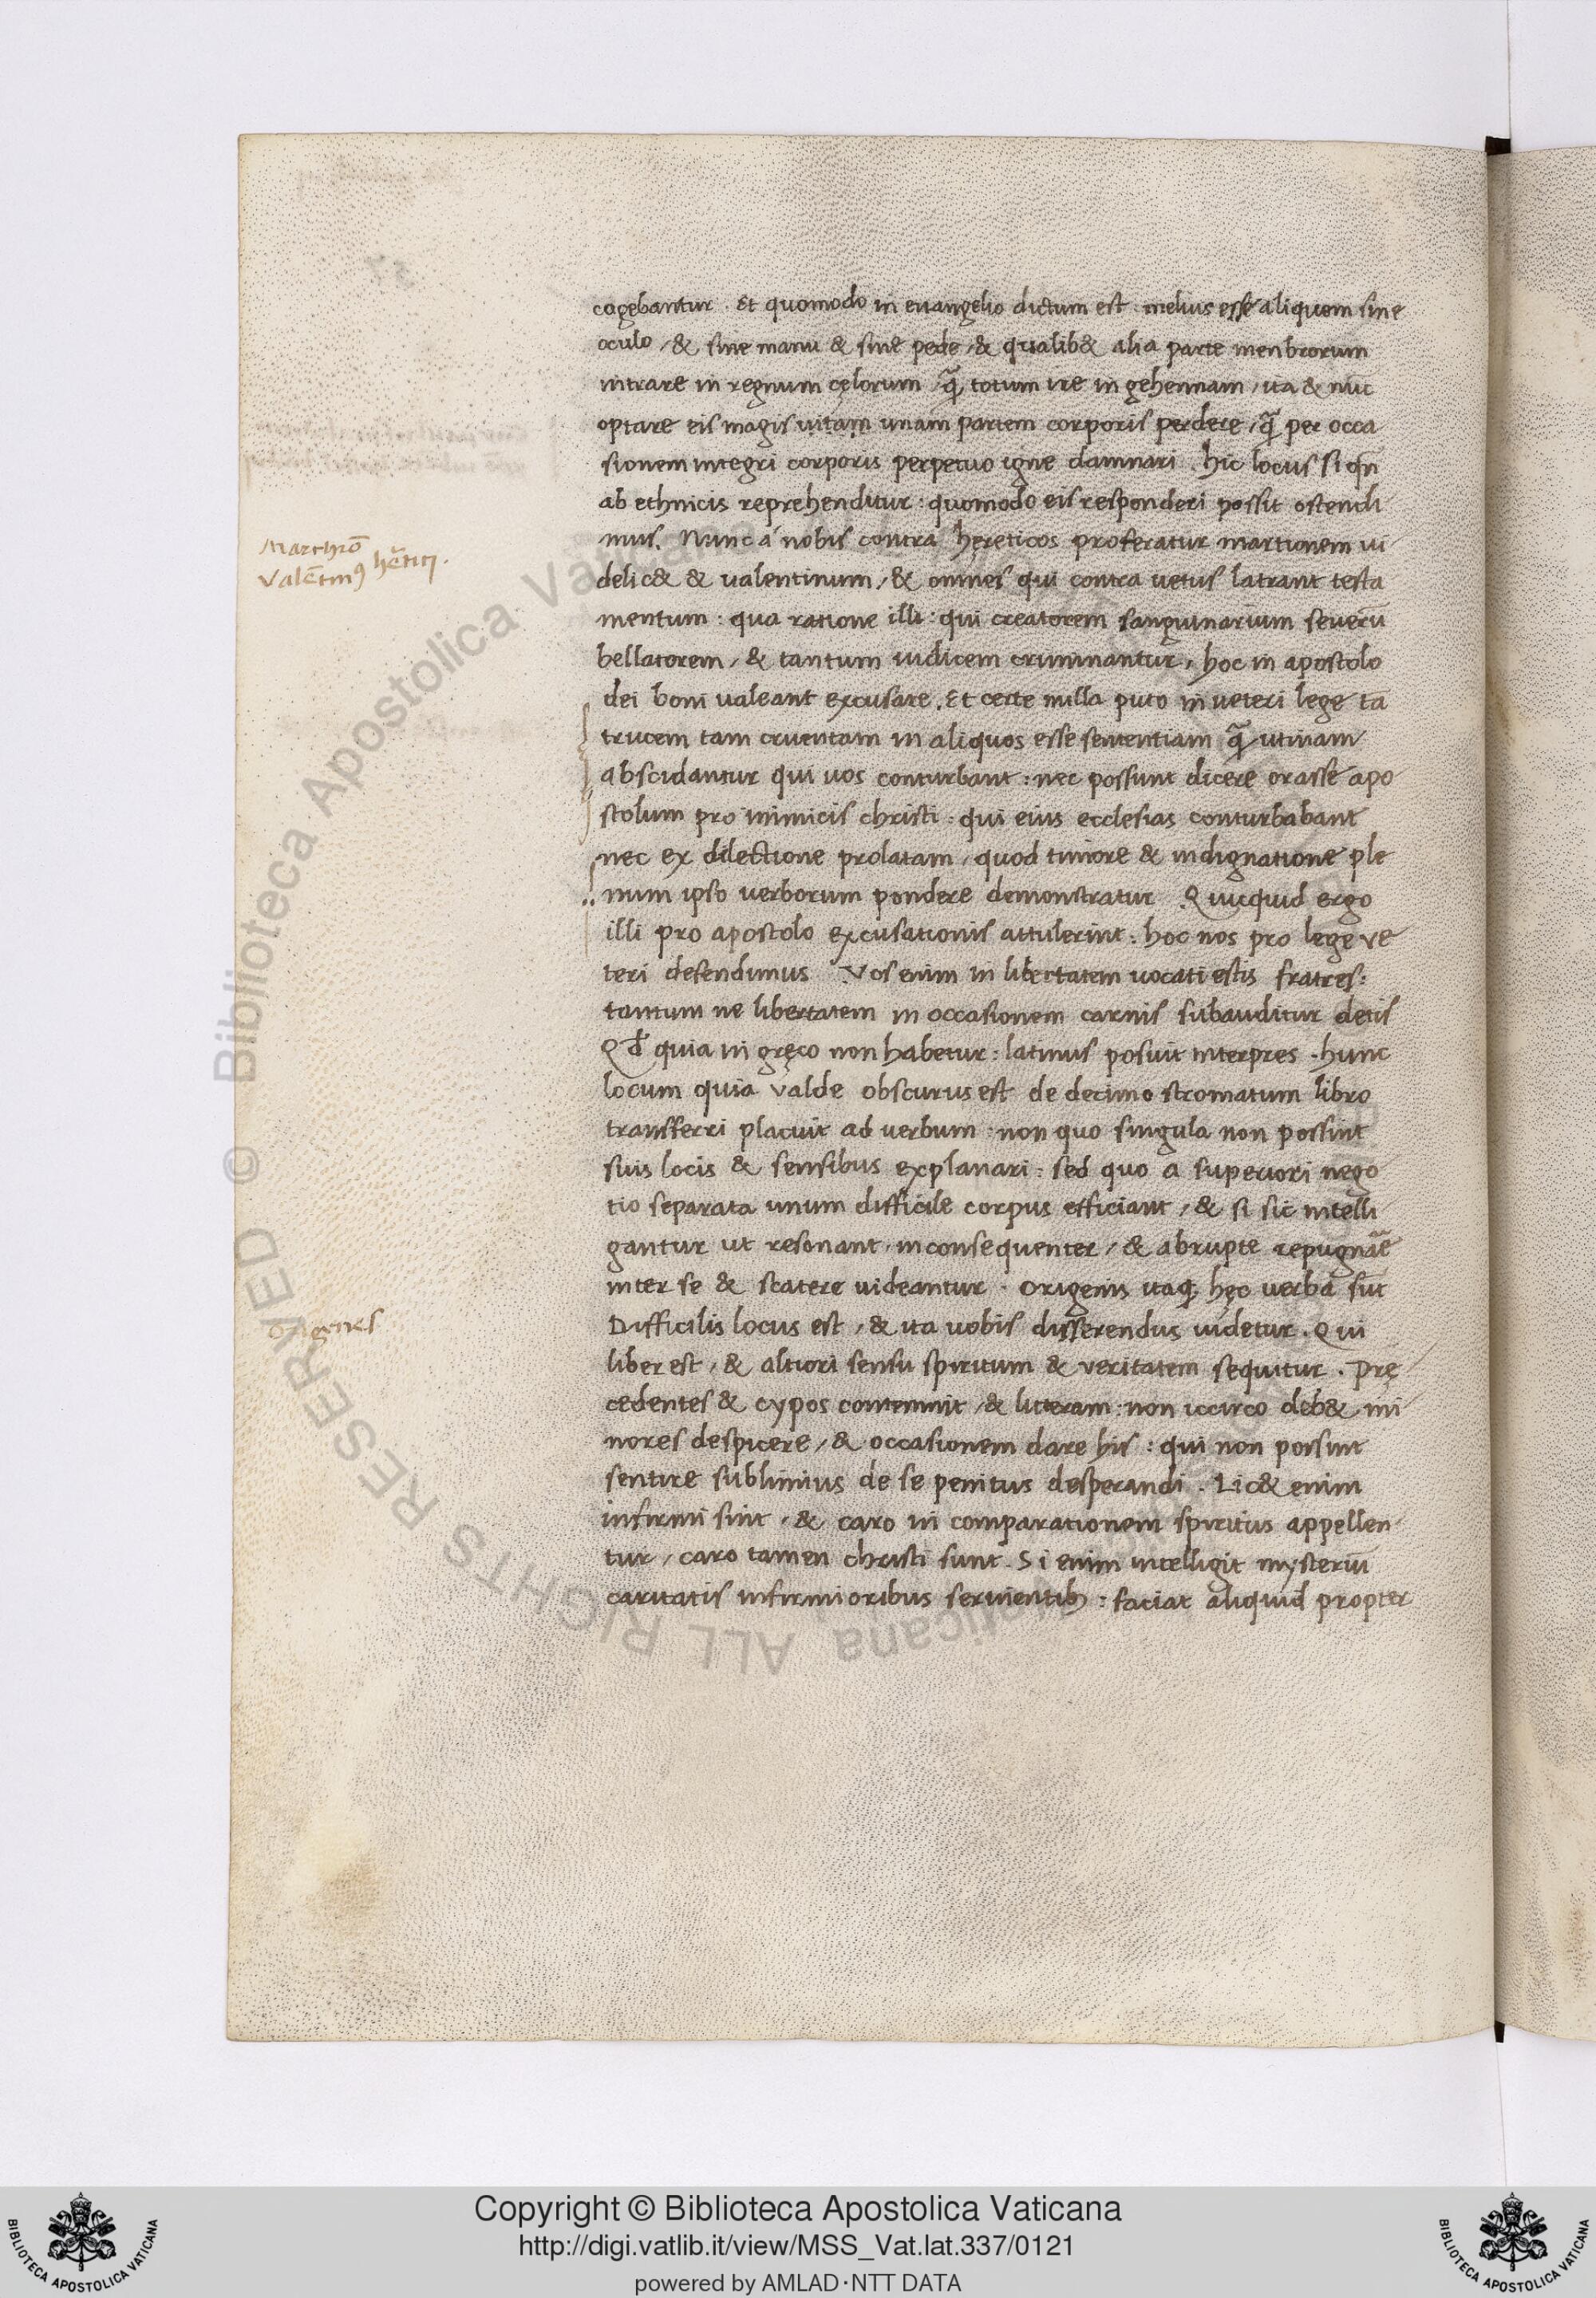 cogebantur. Et quomodo in euangelio dictum est. melius esse aliquem sine
oculo, & sine manu & sine pede, & qualib& alia parte menbrorum
intrare in regnum cęlorum, q̃ totum ire in gehennam, ita & nūc
optare eis magis uitam unam partem corporis perdere, q̃ per occa
sionem integri corporis perpetuo igne damnari. hic locus si qn̄
ab ethnicis reprehenditur: quomodo eis responderi possit ostendi
mus. Nunc a nobis contra hęreticos proferatur martionem ui
delic& & ualentinum, & omnes qui contra uetus latrant testa
mentum: qua ratione illi: qui creatorem sanguinarium seuerū
bellatorem, & tantum iudicem criminantur, hoc in apostolo
dei boni ualeant excusare. Et certe nulla puto in ueteri lege tā
trucem tam cruentam in aliquos esse sententiam q̃ utinam
abscidantur qui uos conturbant: nec possunt dicere orasse apo
stolum pro inimicis christi: qui eius ecclesias conturbabant
nec ex dilectione prolatam, quod timore & indignatione ple
num ipso verborum pondere demonstratur. Quicquid ergo
illi pro apostolo excusationis attulerint: hoc nos pro lege ve
teri defendimus. Vos enim in libertatem uocati estis fratres:
tantum ne libertatem in occasionem carnis subauditur detis
Qd̄ quia in gręco non habetur: latinus posuit interpres. hunc
locum quia valde obscurus est de decimo stromatum libro
transferri placuit ad verbum: non quo singula non possint
suis locis & sensibus explanari: sed quo a superiori nego
tio separata unum difficile corpus efficiant, & si sic intelli
gantur ut resonant, inconsequenter, & abrupte repugnāē
inter se & scatere uideantur. Origenis itaq; hęc verba sūt
Difficilis locus est, & ita uobis disserendus uidetur. Qui
liber est, & altiori sensu spiritum & veritatem sequitur. Prę
cedentes & typos contemnit, & litteram: non iccirco deb& mi
nores despicere, & occasionem dare his: qui non possint
sentire sublimius de se penitus desperandi. Lic& enim
infirmi sint, & caro in comparationem spiritus appellen
tur, caro tamen christi sunt. Si enim intelligit mysteriū
caritatis infirmioribus seruientib;: faciat aliquid propter
Marchiō
Valētin9 hētici.
Origenes
© Biblioteca Apostolica Vaticana ALL RIGHTS RESERVED
Copyright © Biblioteca Apostolica Vaticana
http://digi.vatlib.it/view/MSS_Vat.lat.337/0121
powered by AMLAD·NTT DATA
BIBLIOTECA APOSTOLICA VATICANA
BIBLIOTECA APOSTOLICA VATICANA